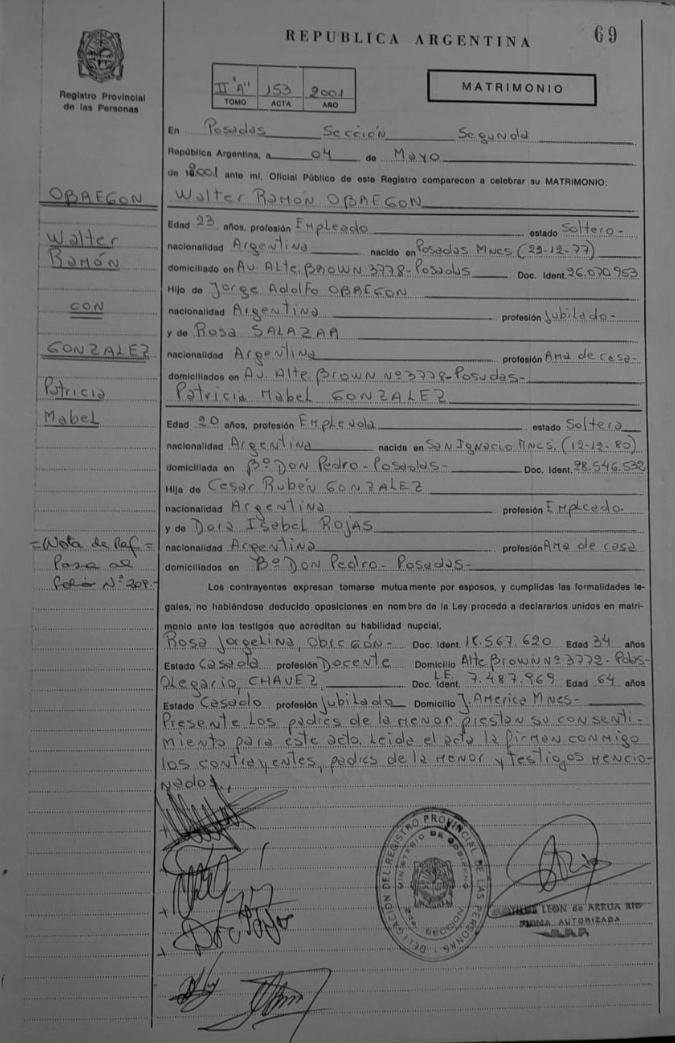 REPUBLICA ARGENTINA
69
Registro Provincial
de las Personas
II "A" 153 2001
TOMO ACTA AÑO
MATRIMONIO
En Posadas Sección Segunda
República Argentina, a 04 de Mayo
de 2001 ante mí, Oficial Público de este Registro comparecen a celebrar su MATRIMONIO:
Walter Ramón OBREGON
Edad 23 años, profesión Empleado estado Soltero-
nacionalidad Argentina nacido en Posadas MNES (29-12-77)
domiciliado en Av. Alte Brown 3778-Posadas Doc. Ident. 26.070.953
Hijo de Jorge Adolfo OBREGON
nacionalidad Argentina profesión Jubilado-
y de Rosa SALAZAR
nacionalidad Argentina profesión Ama de casa-
domiciliados en Av. Alte Brown Nº 3778-Posadas-
Patricia Mabel GONZALEZ
Edad 20 años, profesión Empleada estado Soltera
nacionalidad Argentina nacida en San Ignacio MNES. (12-12-80)
domiciliada en Bº Don Pedro-Posadas- Doc. Ident. 28.546.532
Hija de Cesar Rubén GONZALEZ
nacionalidad Argentina profesión Empleado-
y de Dora Isabel ROJAS
nacionalidad Argentina profesión Ama de casa
domiciliados en Bº Don Pedro- Posadas-
Los contrayentes expresan tomarse mutuamente por esposos, y cumplidas las formalidades le-
gales, no habiéndose deducido oposiciones en nombre de la Ley procedo a declararlos unidos en matri-
monio ante los testigos que acreditan su habilidad nupcial.
Rosa Jorgelina, OBREGÓN- Doc. Ident. 18.567.620 Edad 34 años
Estado Casada profesión Docente Domicilio Alte Brown Nº 3772-Pdas-
Olegario, CHAVEZ Doc. Ident. L.E. 7.487.969 Edad 64 años
Estado Casado profesión Jubilado Domicilio J. America MNES-
Presente los padres de la menor prestan su consenti-
miento para este acto. Leida el acta la firman conmigo
los contrayentes, padres de la menor y testigos mencio-
nados.
OBREGON
Walter
Ramón
CON
GONZALEZ
Patricia
Mabel
=Nota de Ref.=
Pasa al
folio Nº 209.-
DELEGACION DEL REGISTRO PROVINCIAL DE LAS PERSONAS
MINISTERIO DE GOBIERNO
SECCION
LEON de ARRUA
FIRMA AUTORIZADA